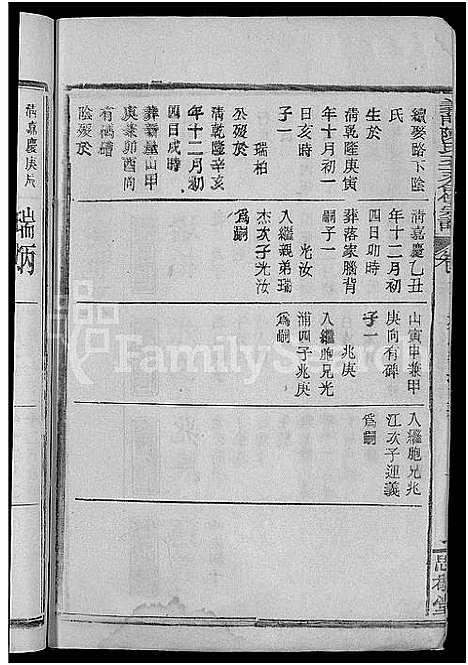 續娶路下陰
氏
生於
清乾隆庚寅
年十月初一
日亥時
子一
瑞柏
公歿於
清乾隆辛亥
年十二月初
四日戌時
葬嚴山甲
庚兼卯酉
有碑
陰歿於
清嘉慶乙丑
年十二月初
四日卯時
葬落家腦背
嗣子一
光汝
入繼親弟瑞
杰次子光汝
為嗣
山寅申兼甲
庚向有碑
子一
兆庚
入繼胞兄光
浦四子兆庚
為嗣
入繼胞兄兆
江次子迎義
為嗣
清嘉慶庚辰
瑞炳
FamilySearch